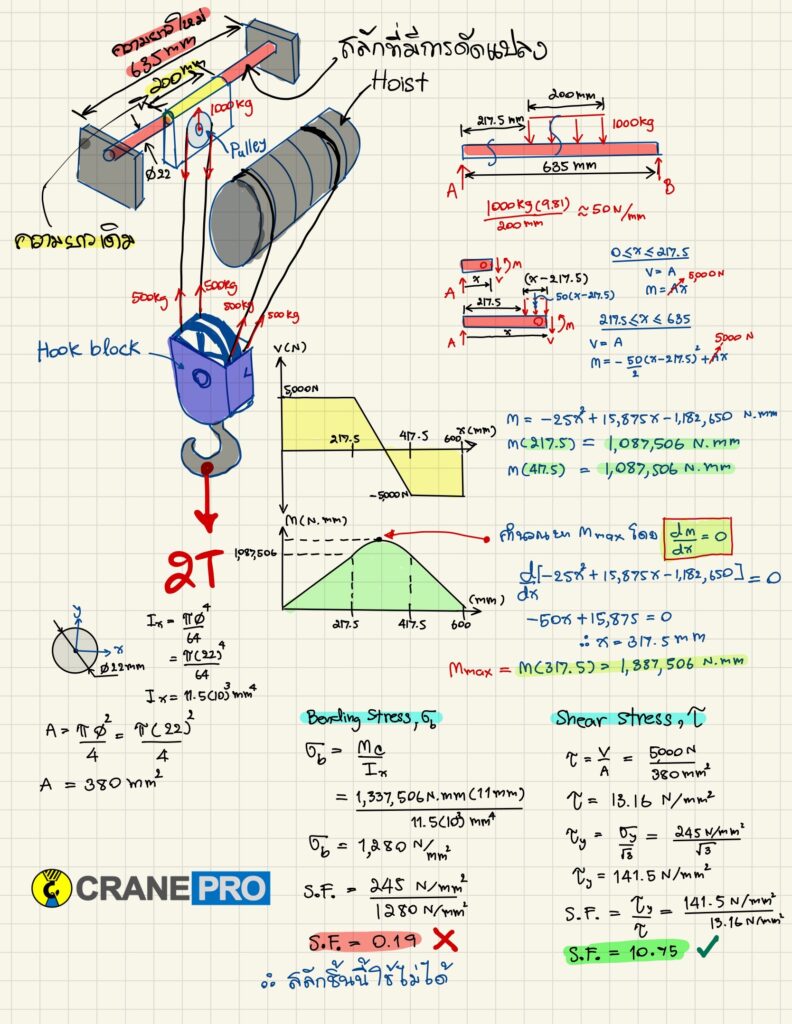 ความยาวใหม่
635 mm
200mm
สลักที่มีการดัดแปลง
Hoist
1000kg
Pulley
Ø22
ความยาวเดิม
500kg
500kg
500kg
500kg
Hook block
2T
200mm
217.5 mm
1000kg
635 mm
A
B
1000kg(9.81)
200mm
≈50 N/mm
0≤x≤217.5
V = A
M = Ax
5,000N
M
V
x
A
(x-217.5)
217.5
50(x-217.5)
A
x
M
V
217.5≤x≤635
V = A
5000 N
M = - 50/2 (x-217.5)² + Ax
V(N)
5,000N
217.5
417.5
600
x(mm)
-5,000N
M = -25x² + 15,875x - 1,182,650 N.mm
M(217.5) = 1,087,506 N.mm
M(417.5) = 1,087,506 N.mm
M(N.mm)
1,087,506
217.5
417.5
600
(mm)
คำนวณหา Mmax โดย dM/dx = 0
d/dx[-25x²+15,875x-1,182,650] = 0
-50x+15,875 = 0
∴ x = 317.5 mm
Mmax = M(317.5) = 1,337,506 N.mm
y
x
Ø22mm
Ix = πØ⁴/64
= π(22)⁴/64
Ix = 11.5(10)³mm⁴
A = πØ²/4 = π(22)²/4
A = 380 mm²
Bending Stress, σb
σb = Mc/Ix
= 1,337,506 N.mm (11mm)/11.5(10³)mm⁴
σb = 1,280 N/mm²
S.F. = 245 N/mm²/1280 N/mm²
S.F. = 0.19 ✗
∴ สลักชิ้นนี้ใช้ไม่ได้
Shear Stress, τ
τ = V/A = 5000N/380mm²
τ = 13.16 N/mm²
τy = σy/√3 = 245 N/mm²/√3
τy = 141.5 N/mm²
S.F. = τy/τ = 141.5 N/mm²/13.16 N/mm²
S.F. = 10.75 ✓
CRANE PRO